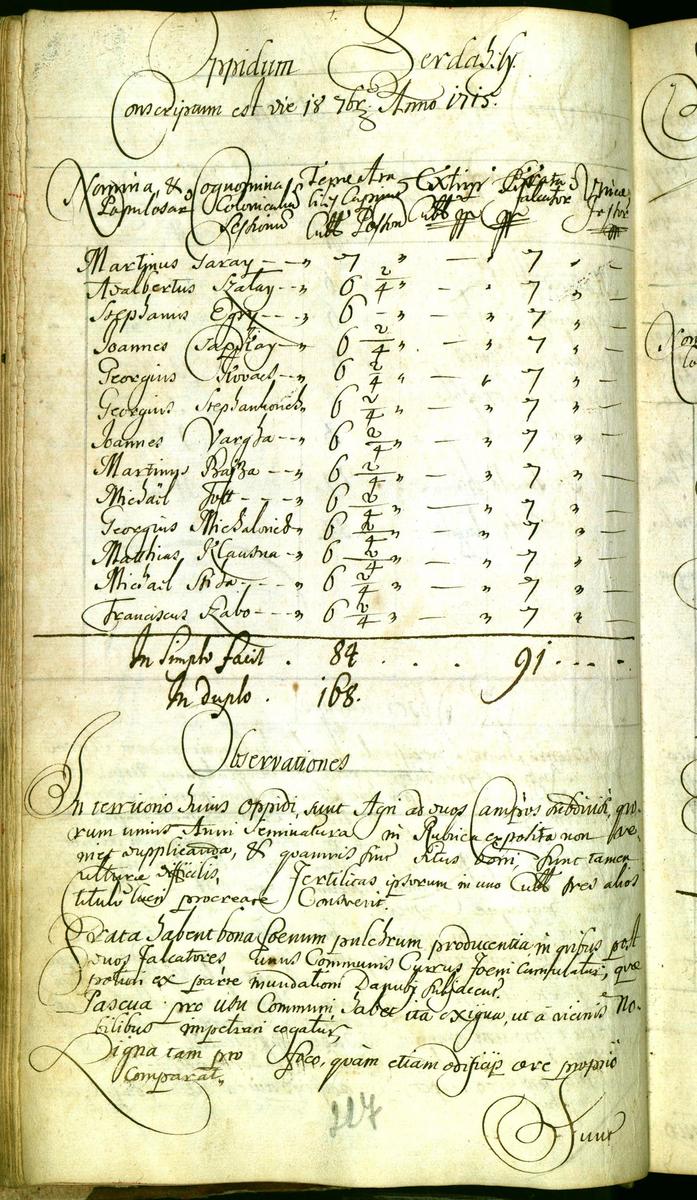 Oppidum Serdahely.
Conscriptum est die 18 7br: Anno 1715.
Nomina, & Cognomina Terrae Ara Extirp Prata Vinea
Populosar Colonicaliu biles Capiunt Cubb Falcator Fossor
Sessionu Cubb Poson
Martinus Garay - - „ 7 „ — „ 7 „ —
Adalbertus Szalay - - „ 6 2/4 „ — „ 7 „ —
Stephanus Egry - - „ 6 - „ — „ 7 „ —
Joannes - - „ 6 2/4 „ — „ 7 „ —
Georgius Kovacs - - „ 6 2/4 „ — „ 7 „ —
Georgius Stephankovich „ 6 2/4 „ — „ 7 „ —
Joannes Vargha - - „ 6 2/4 „ — „ 7 „ —
Martinus - - „ 6 2/4 „ — „ 7 „ —
Michäel Tott - - - „ 6 2/4 „ — „ 7 „ —
Georgius Michalovich „ 6 2/4 „ — „ 7 „ —
Matthias Klausna - „ 6 2/4 „ — „ 7 „ —
Michäel - - - „ 6 2/4 „ — „ 7 „ —
Franciscus Szabo - - - „ 6 2/4 „ — „ 7 „ —
In Simplo facit . 84 . . . . 91 - - - -
In duplo . 168.
Observationes
In territorio huius Oppidi, sunt Agri ad duos Campos subdivisi, quo-
rum unius Anni Seminatura in Rubrica exposita non ve-
niet dupplicanda, & quamvis sint Situs boni, sunt tamen
Culturae difficilis, Fertilitas ipsorum in uno Cubb tres alios
titulo lucri procreare Consvevit.
Prata habent bona foenum pulchrum producentia in quibus post
duos falcatores unus Communis Currus foeni Cumulatur, quae
potiori ex parte inundationi Danubij subjacent.
Pascua pro usu Communi habet ita exigua, ut a vicinis No-
bilibus impetrari cogatur,
Ligna tam pro foco, quam etiam aedificijs aere proprio
Comparat.
117
Sunt